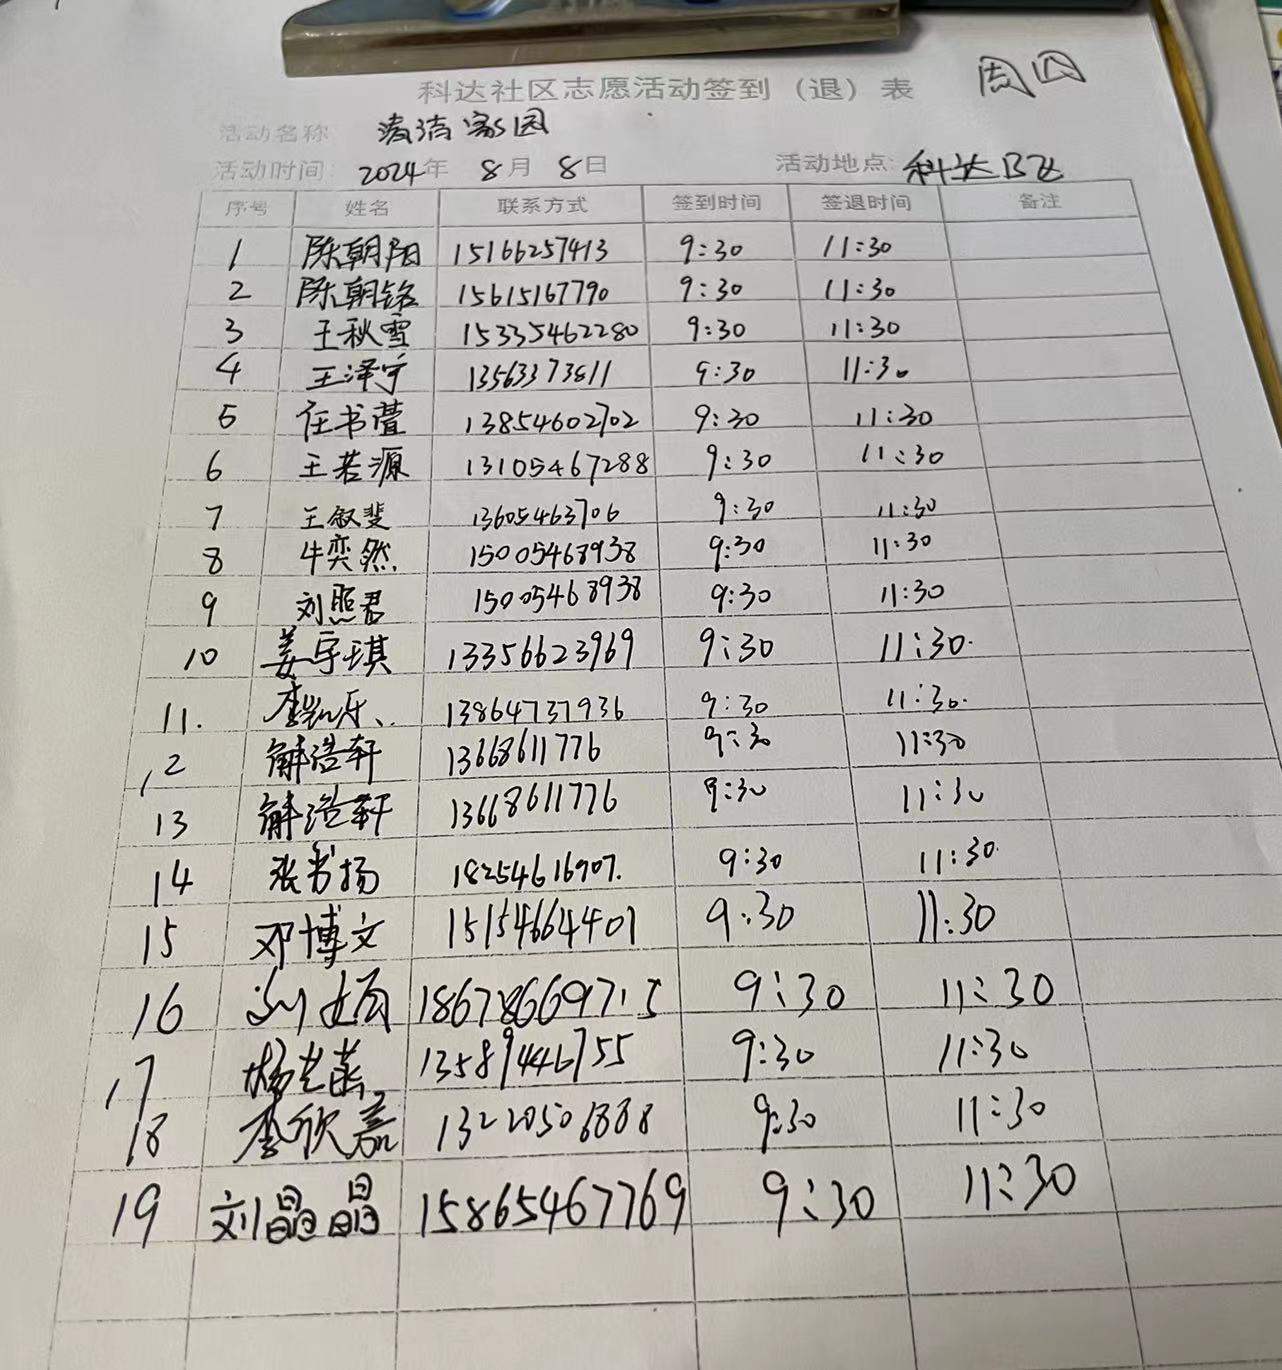 科达社区志愿活动签到（退）表 周四
活动名称 清洁家园
活动时间: 2024年 8月 8日 活动地点: 科达B区
序号 姓名 联系方式 签到时间 签退时间 备注
1 陈朝阳 15166257413 9:30 11:30
2 陈朝铭 15615167790 9:30 11:30
3 王秋雪 15335462280 9:30 11:30
4 王泽宁 13563373811 9:30 11:30
5 任书萱 13854602702 9:30 11:30
6 王若源 13105467288 9:30 11:30
7 王叙斐 13605463706 9:30 11:30
8 牛奕然 15005468938 9:30 11:30
9 刘照君 15005468938 9:30 11:30
10 姜宇琪 13356623969 9:30 11:30
11. 李凯乐 13864737936 9:30 11:30
12 解浩轩 13668611776 9:30 11:30
13 解浩轩 13668611776 9:30 11:30
14 张书扬 18254616907. 9:30 11:30
15 邓博文 15154664401 9:30 11:30
16 刘 9:30 11:30
17 杨 13589446755 9:30 11:30
18 李欣嘉 13220506888 9:30 11:30
19 刘晶晶 15865467769 9:30 11:30